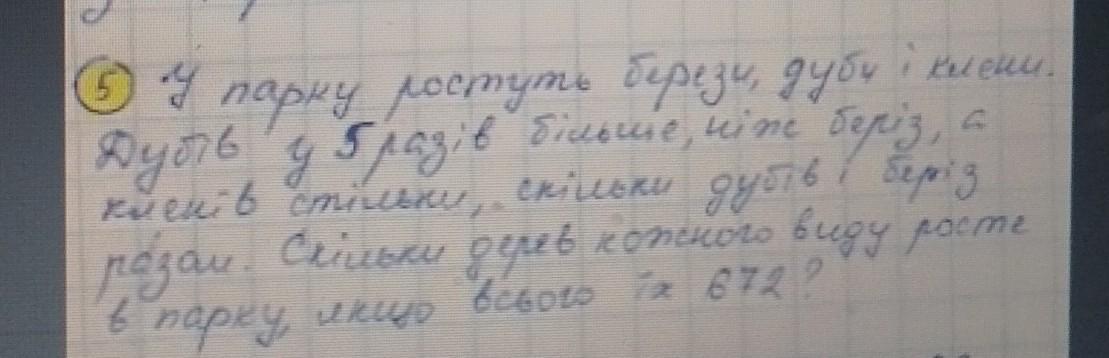 5 У парку ростуть берези, дуби і клени.
Дубів у 5 разів більше, ніж беріз, а
кленів стільки, скільки дубів і беріз
разом. Скільки дерев кожного виду росте
в парку, якщо всього їх 672?